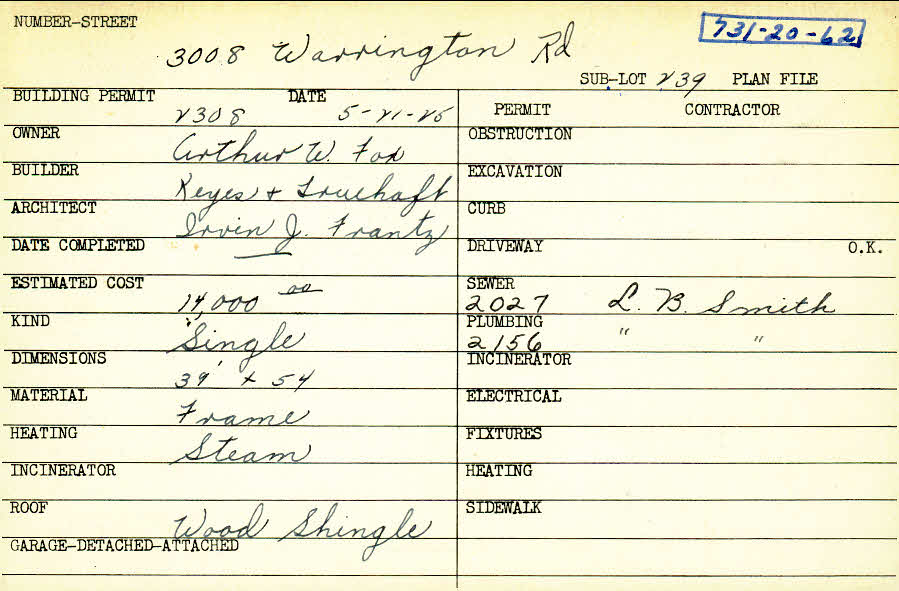 NUMBER-STREET
3008 Warrington Rd
731-20-62
SUB-LOT 239 PLAN FILE
BUILDING PERMIT DATE
2308 5-21-25
PERMIT CONTRACTOR
OWNER
Arthur W. Fox
BUILDER
Keyes + Truehaft
ARCHITECT
Irvin J. Frantz
DATE COMPLETED
ESTIMATED COST
14,000 00
KIND
Single
DIMENSIONS
39' x 54
MATERIAL
Frame
HEATING
Steam
INCINERATOR
ROOF
Wood Shingle
GARAGE-DETACHED-ATTACHED
OBSTRUCTION
EXCAVATION
CURB
DRIVEWAY O.K.
SEWER
2027 L. B. Smith
PLUMBING
2156 " "
INCINERATOR
ELECTRICAL
FIXTURES
HEATING
SIDEWALK